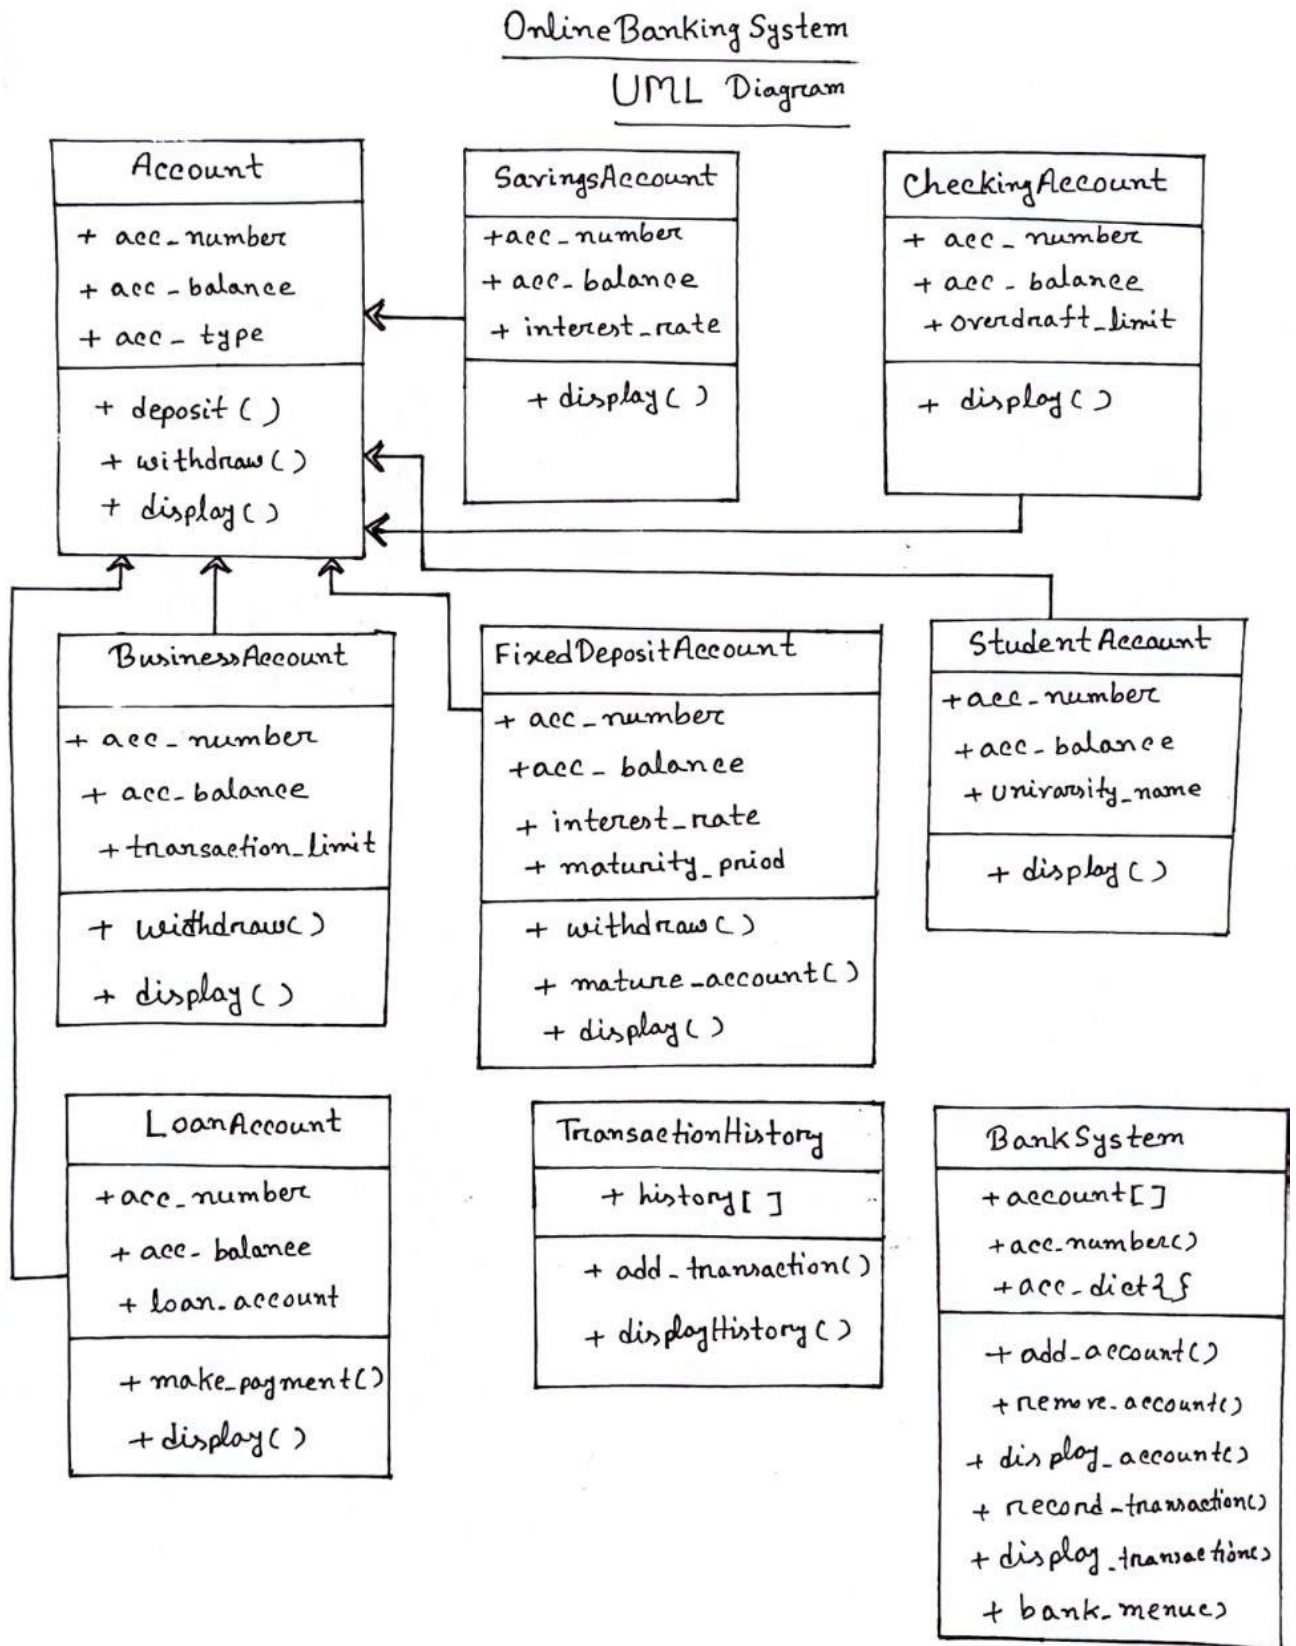 Online Banking System
UML Diagram
Account
+ acc_number
+ acc_balance
+ acc_type
+ deposit()
+ withdraw()
+ display()
SavingsAccount
+acc_number
+ acc_balance
+ interest_rate
+ display()
CheckingAccount
+ acc_number
+ acc_balance
+ overdraft_limit
+ display()
BusinessAccount
+ acc_number
+ acc_balance
+ transaction_limit
+ widhdraw()
+ display()
FixedDepositAccount
+ acc_number
+acc_balance
+ interest_rate
+ maturity_priod
+ withdraw()
+ mature_account()
+ display()
StudentAccount
+acc_number
+acc_balance
+ univarsity_name
+ display()
LoanAccount
+acc_number
+ acc_balance
+ loan_account
+ make_payment()
+ display()
TransactionHistory
+ history[ ]
+ add_transaction()
+ displayHistory()
BankSystem
+account[]
+acc_number()
+acc_dict{}
+ add_account()
+ remove_account()
+ display_account()
+ record_transaction()
+ display_transaction()
+ bank_menu()